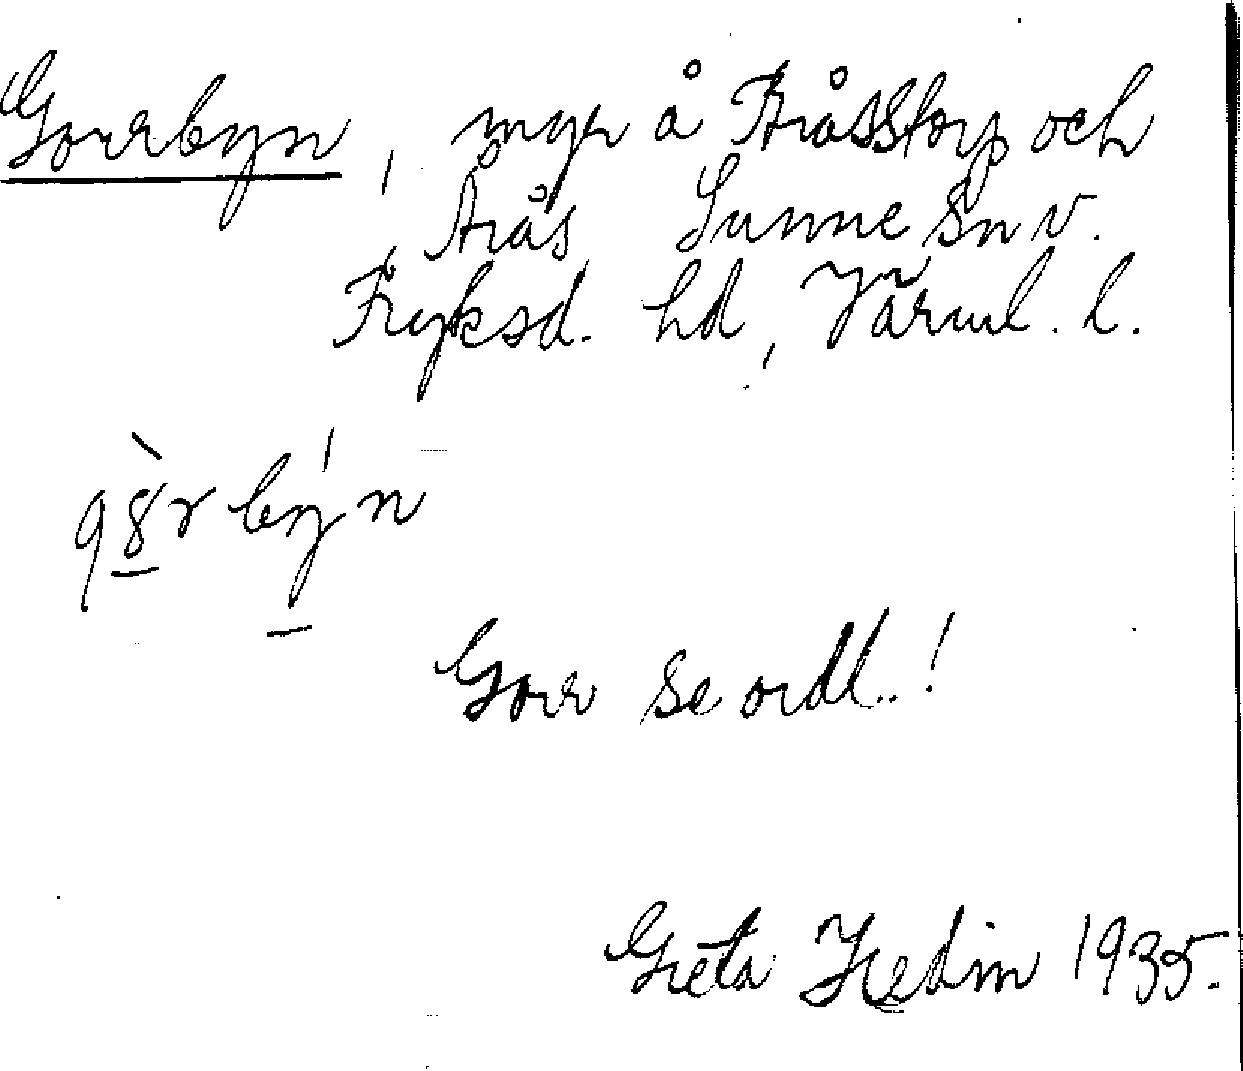 Gorrbyn, myr å Åråsstorp och
Årås Sunne sn v.
Fryksd. hd, Värml. l.
Gorr se ordl..!
Greta Hedin 1935.